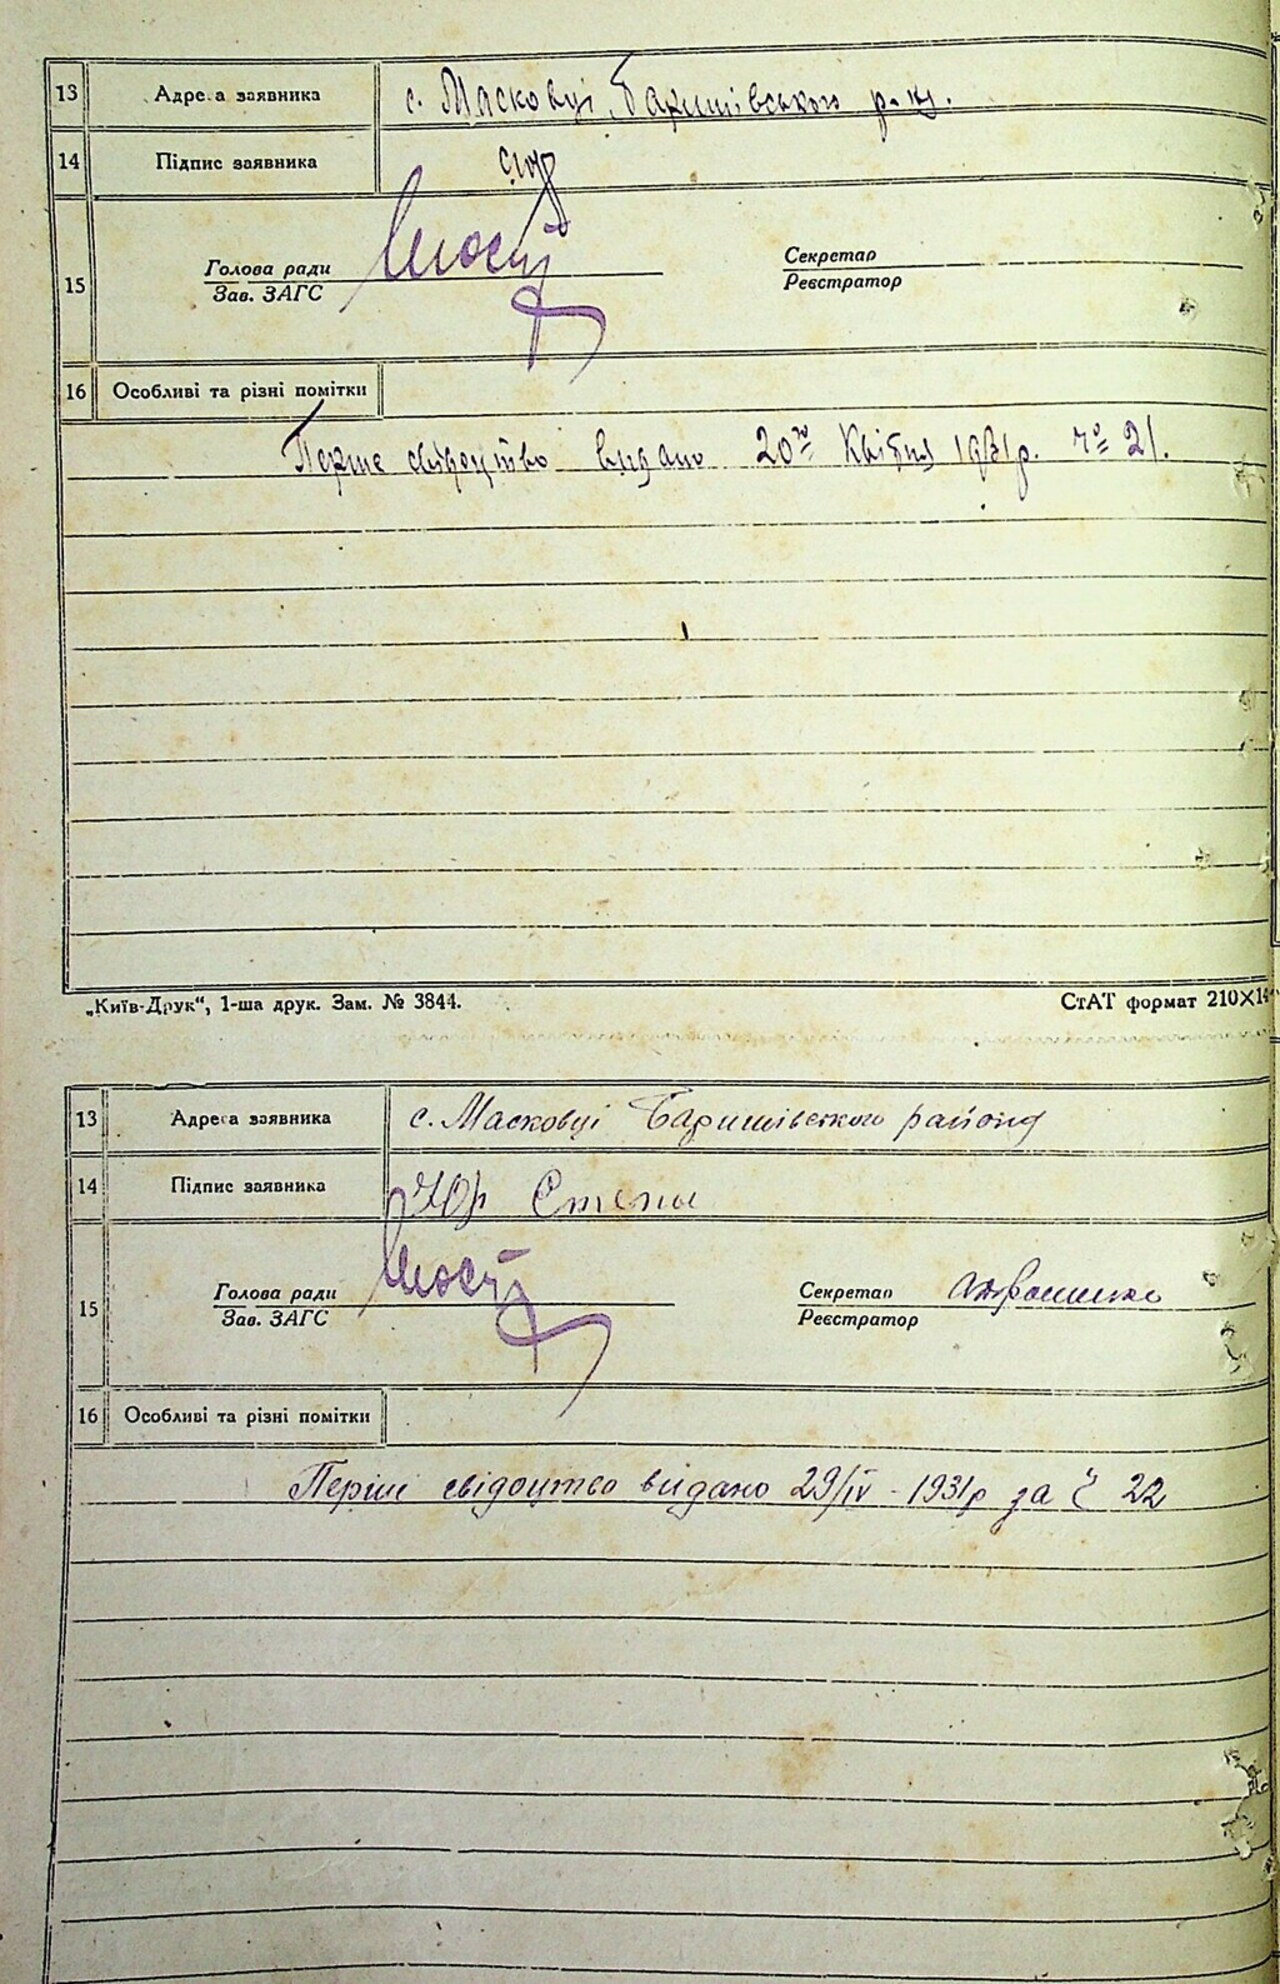 13 Адреса заявника с. Масковці Баришівського р-ну.
14 Підпис заявника
15 Голова ради Секретар
Зав. ЗАГС Реєстратор
16 Особливі та різні помітки
Перше свідоцтво видано 20го Квітня 1931р. № 21.
„Київ-Друк“, 1-ша друк. Зам. № 3844. СтАТ формат 210×14
13 Адреса заявника с. Масковці Баришівського району
14 Підпис заявника Степа
15 Голова ради Секретар
Зав. ЗАГС Реєстратор
16 Особливі та різні помітки
Перше свідоцтво видано 29/IV - 1931р за ч 22